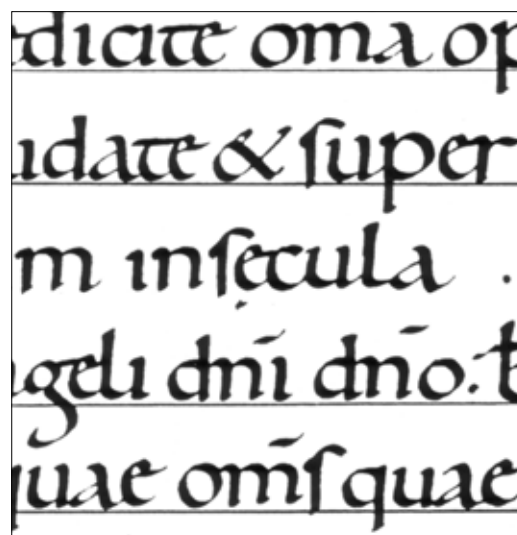 edicite oma op
udate & ſuper
m inſęcula .
ngeli dn̄i dn̄o: b
quae om̄ſ quae